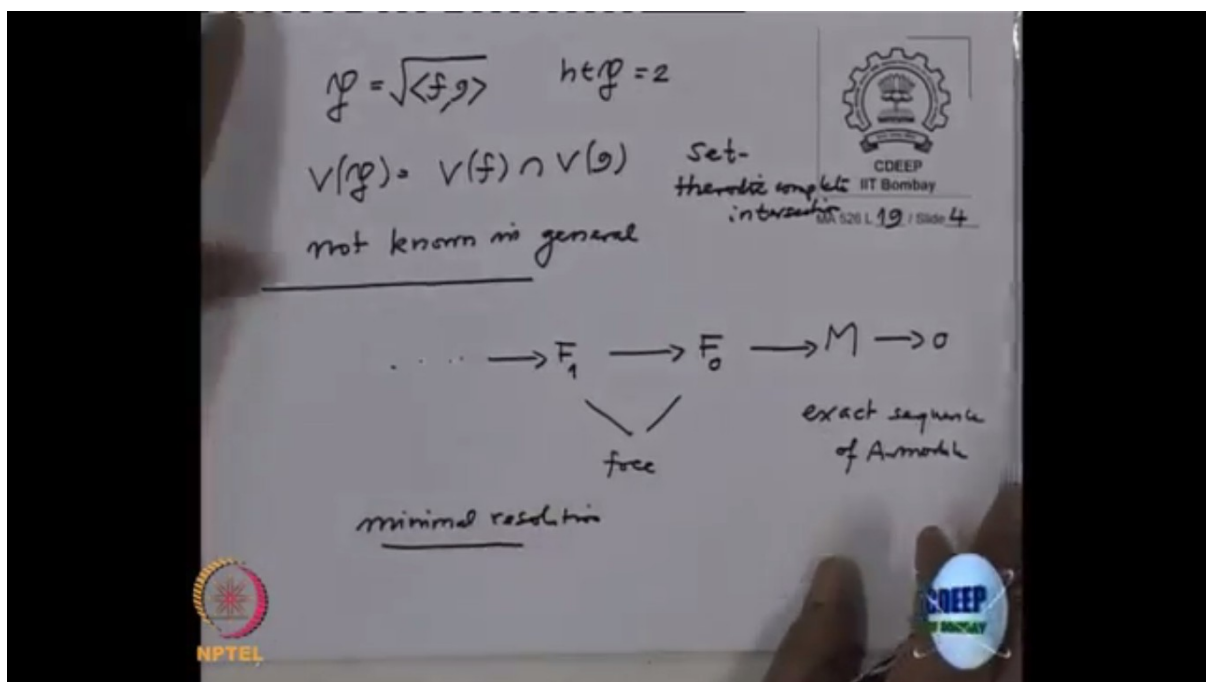 𝔭 = √<f,g>    ht 𝔭 = 2
V(𝔭) = V(f) ∩ V(g)
set-
theroetic complete
intersection
not known in general
CDEEP
IIT Bombay
MA 526 L 19 / Slide 4
.... → F₁ → F₀ → M → 0
free
exact sequence
of A-module
minimal resolution
NPTEL
CDEEP
IIT BOMBAY